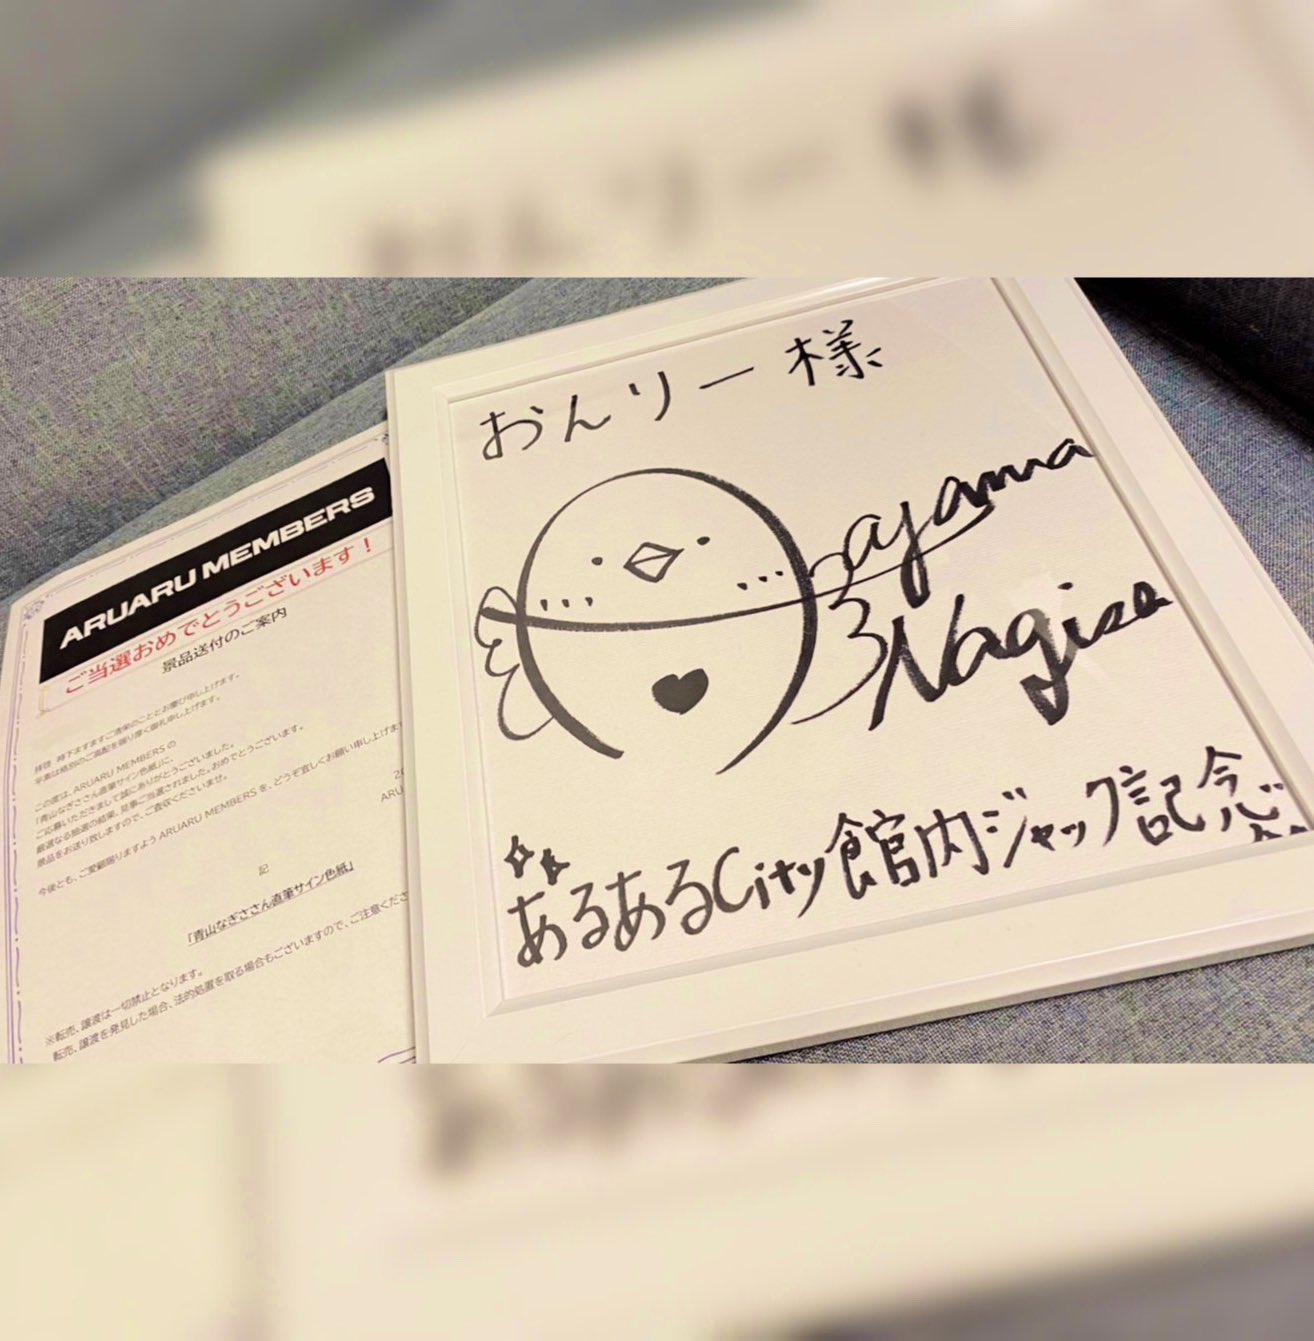 ARUARU MEMBERS
ご当選おめでとうございます！
景品送付のご案内
拝啓 時下ますますご清栄のこととお慶び申し上げます。
平素は格別のご高配を賜り厚く御礼申し上げます。
この度は、ARUARU MEMBERSの
「青山なぎささん直筆サイン色紙」に、
ご応募いただきまして誠にありがとうございました。
厳選なる抽選の結果、見事ご当選されました。おめでとうございます。
景品をお送り致しますので、ご査収くださいませ。
今後とも、ご愛顧賜りますようARUARU MEMBERSを、どうぞ宜しくお願い申し上げま
20
ARU
記
「青山なぎささん直筆サイン色紙」
※転売、譲渡は一切禁止となります。
転売、譲渡を発見した場合、法的処置を取る場合もございますので、ご注意くださ
おんりー様
Aoyama
Nagisa
あるあるCity館内ジャック記念